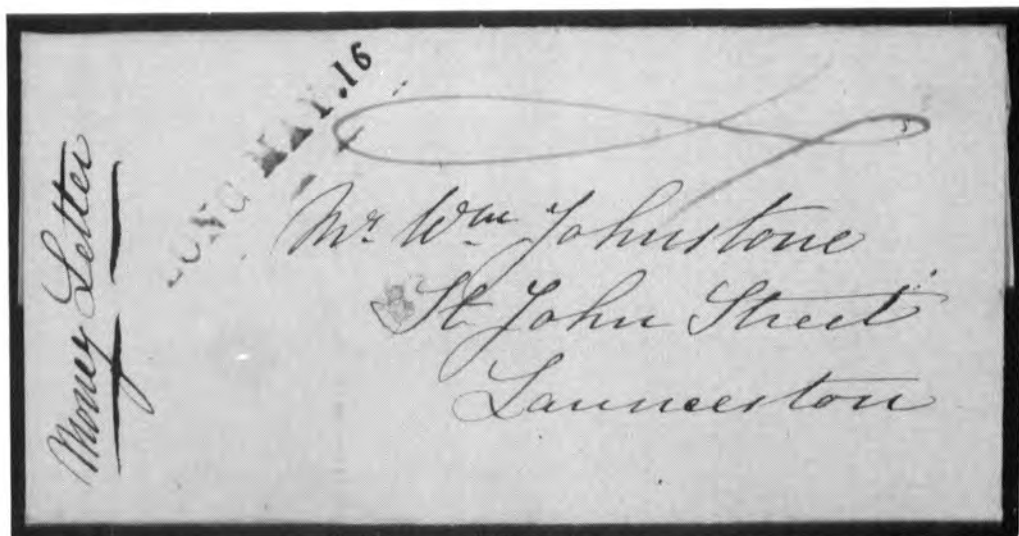 Money Letter
MAY.16
Mr. Wm Johnstone
St. John Street
Launceston